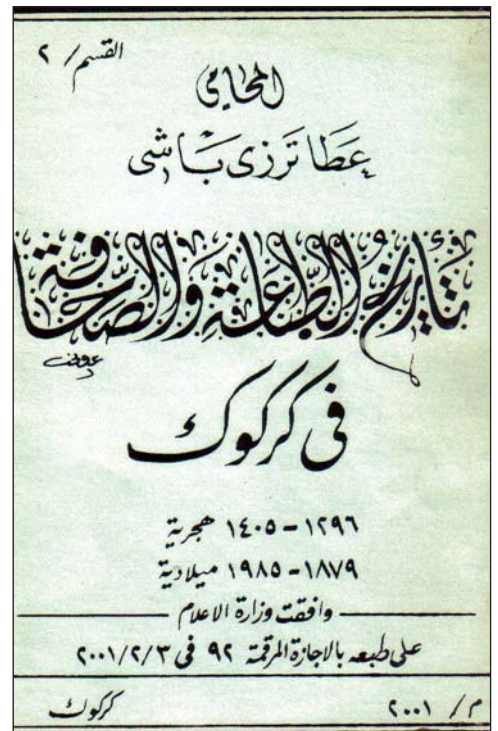 القسم / ٢
المحامي
عطا ترزى باشى
تأريخ الطباعة والصحافة
فى كركوك
١٢٩٦ - ١٤٠٥ هجرية
١٨٧٩ - ١٩٨٥ ميلادية
وافقت وزارة الاعلام
على طبعه بالاجازة المرقمة ٩٢ فى ٢٠٠١/٢/٣
كركوك
٢٠٠١ / م